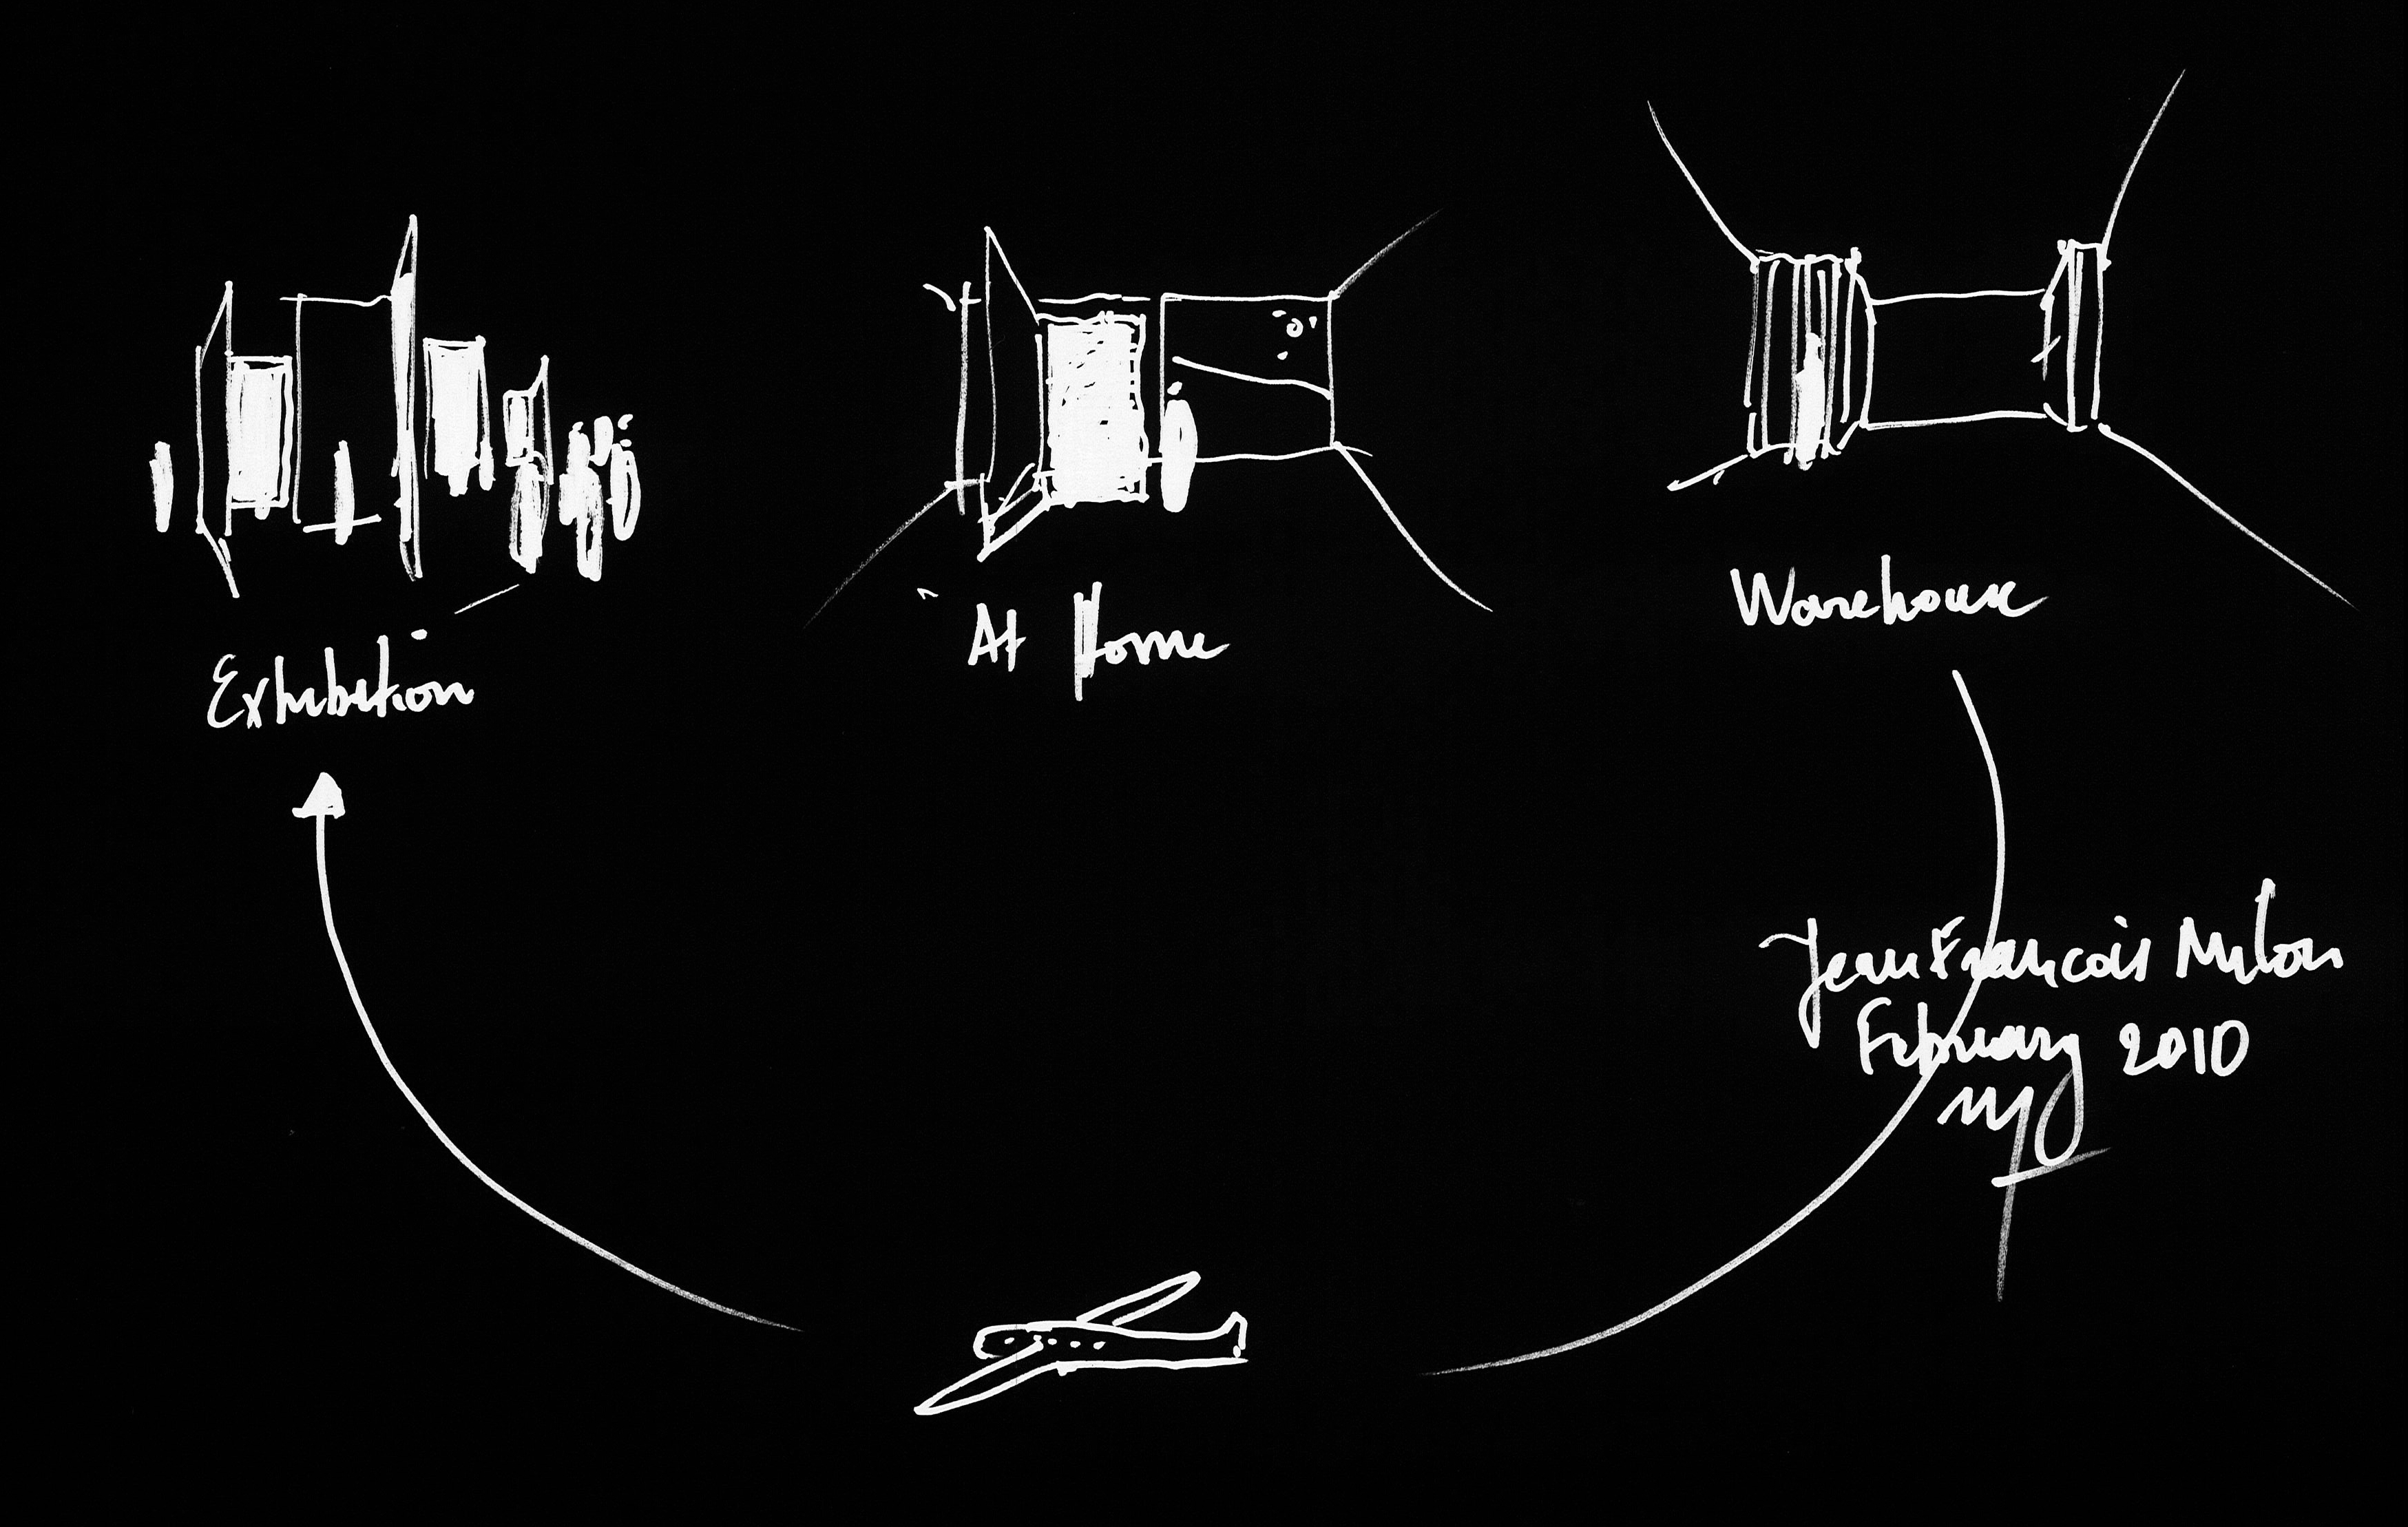 Exhibition
At Home
Warehouse
Jean François Milou
February 2010